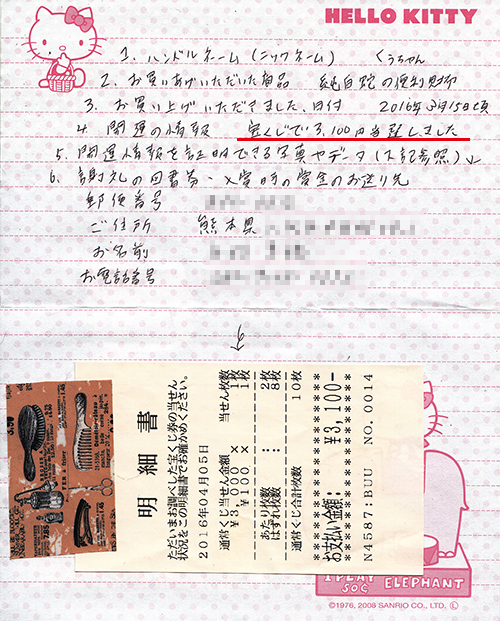 HELLO KITTY
1. ハンドルネーム(ニックネーム) くぅちゃん
2. お買いあげいただいた商品 純白蛇の便利財布
3. お買い上げいただきました、日付 2016年3月15日頃
4 開運の情報 宝くじで3,100円当選しました
5. 開運情報を証明できる写真やデータ(下記参照)↓
6. 謝礼の図書券・入賞時の賞金のお送り先
郵便番号
ご住所 熊本県
お名前
お電話番号
明細書
ただいまお調べした宝くじ券の当せん
状況をこの明細書でお確かめください。
2016年04月05日
通常くじ当せん金額 当せん枚数
¥3,000× 1枚
¥100× 1枚
あたり枚数: 2枚
はずれ枚数: 8枚
通常くじ合計枚数 10枚
お支払い金額: ¥3,100-
N4587:BUU NO.0014
I PLAY
SOC ELEPHANT
©1976, 2008 SANRIO CO., LTD.